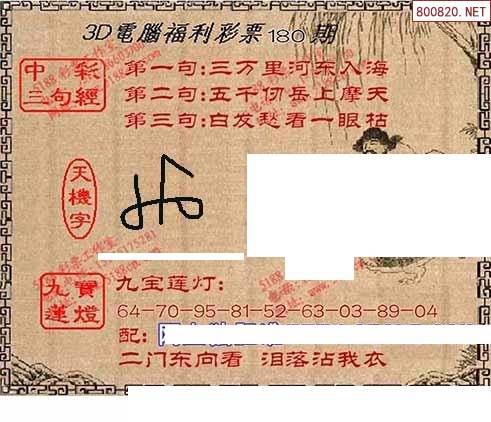 800820.NET
3D電腦福利彩票180期
中彩
三句經
第一句:三万里河东入海
第二句:五千仞岳上摩天
第三句:白发愁看一眼枯
天機字
九寶
蓮燈
九宝莲灯:
64-70-95-81-52-63-03-89-04
配:
二门东向看 泪落沾我衣